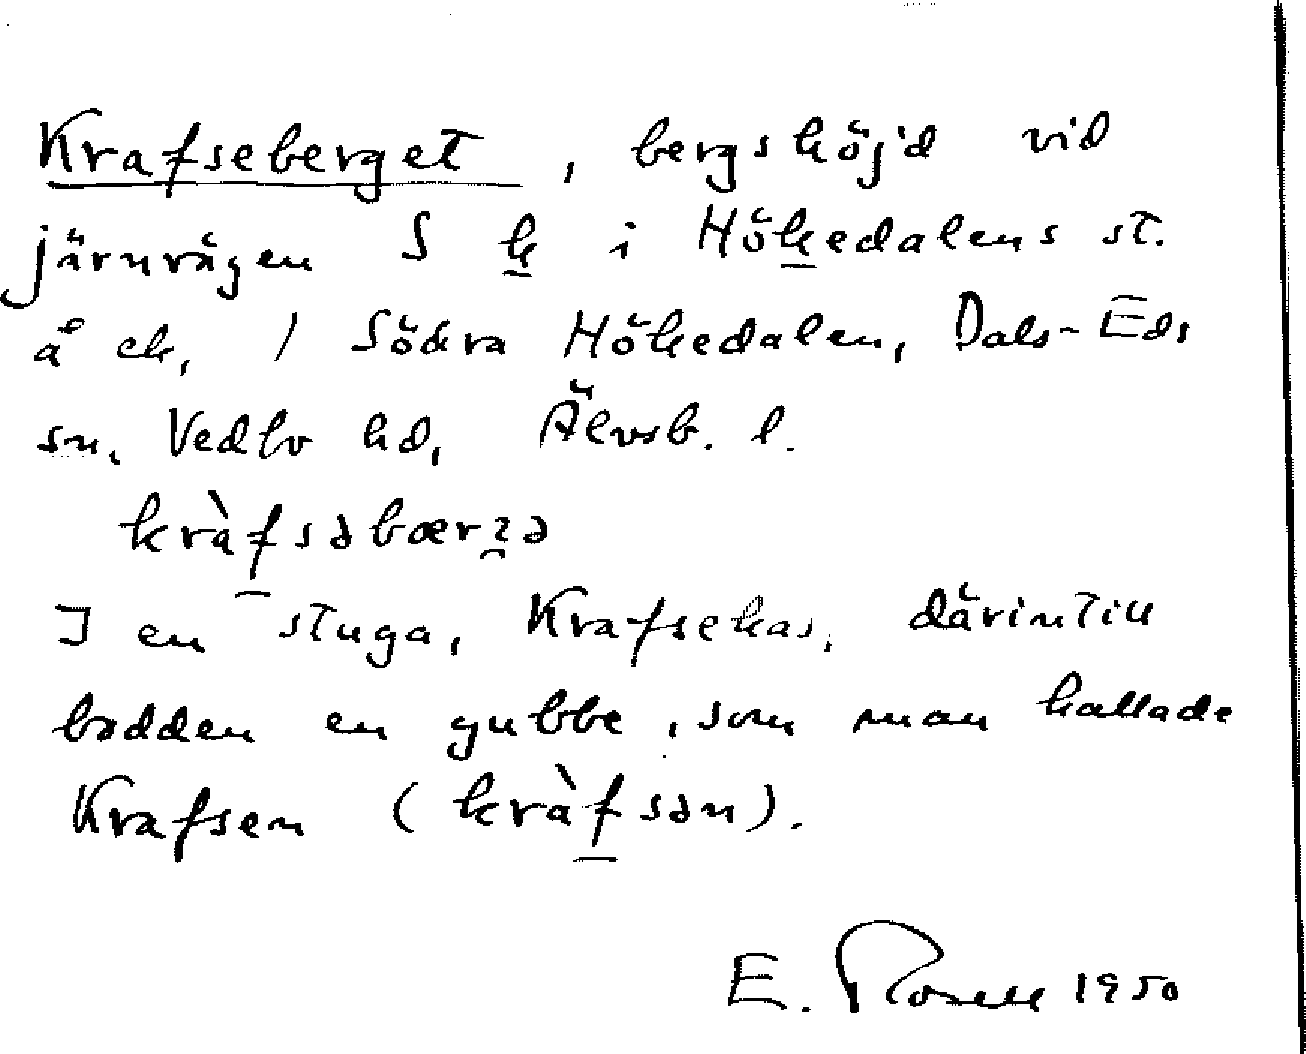 Krafseberget, bergshöjd vid
järnvägen S k i Hökedalens st.
å ek, / Södra Hökedalen, Dals-Eds
sn, Vedbo hd, Älvsb. l.
kràfsəbærʒə
I en stuga, Krafsekas, därintill
bodden en gubbe, som man kallade
Krafsen (kràfsən).
E. Rosell 1950